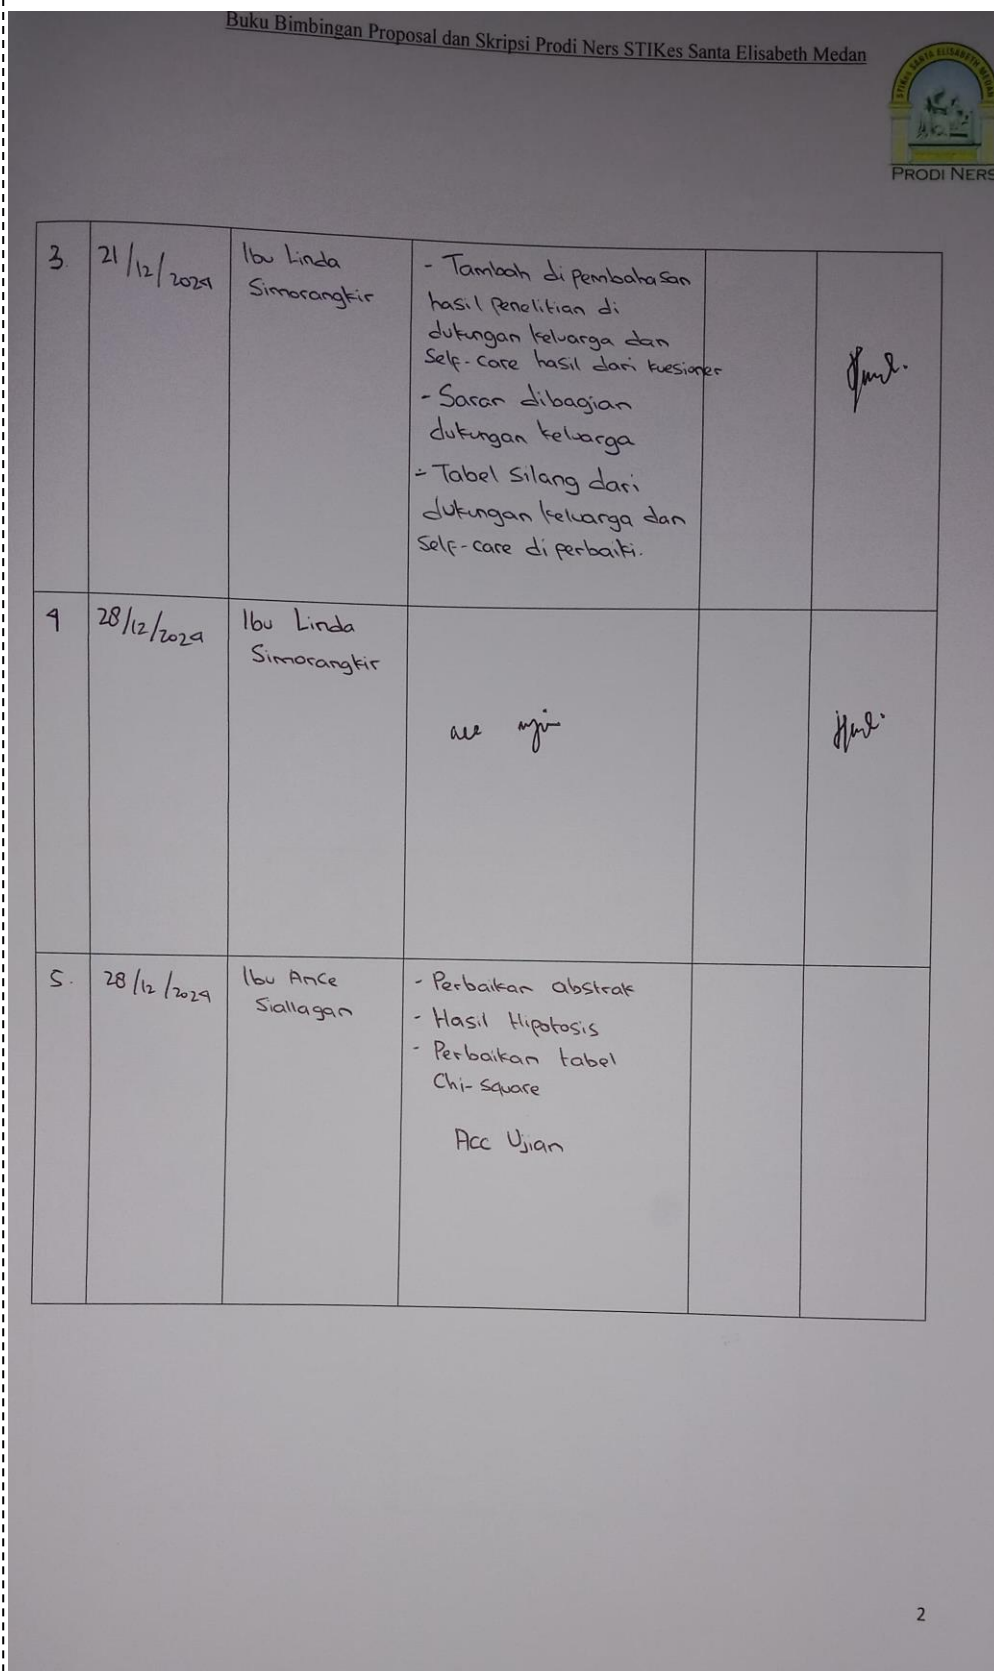 Buku Bimbingan Proposal dan Skripsi Prodi Ners STIKes Santa Elisabeth Medan
STIKES SANTA ELISABETH MEDAN
PRODI NERS
3.
21/12/2024
Ibu Linda
Simorangkir
- Tambah di pembahasan
hasil penelitian di
dukungan keluarga dan
Self-care hasil dari kuesioner
- Saran dibagian
dukungan keluarga
- Tabel Silang dari
dukungan keluarga dan
Self-care di perbaiki.
4
28/12/2024
Ibu Linda
Simorangkir
acc
5.
28/12/2024
Ibu Ance
Siallagan
- Perbaikan abstrak
- Hasil Hipotosis
- Perbaikan tabel
Chi-Square
Acc Ujian
2